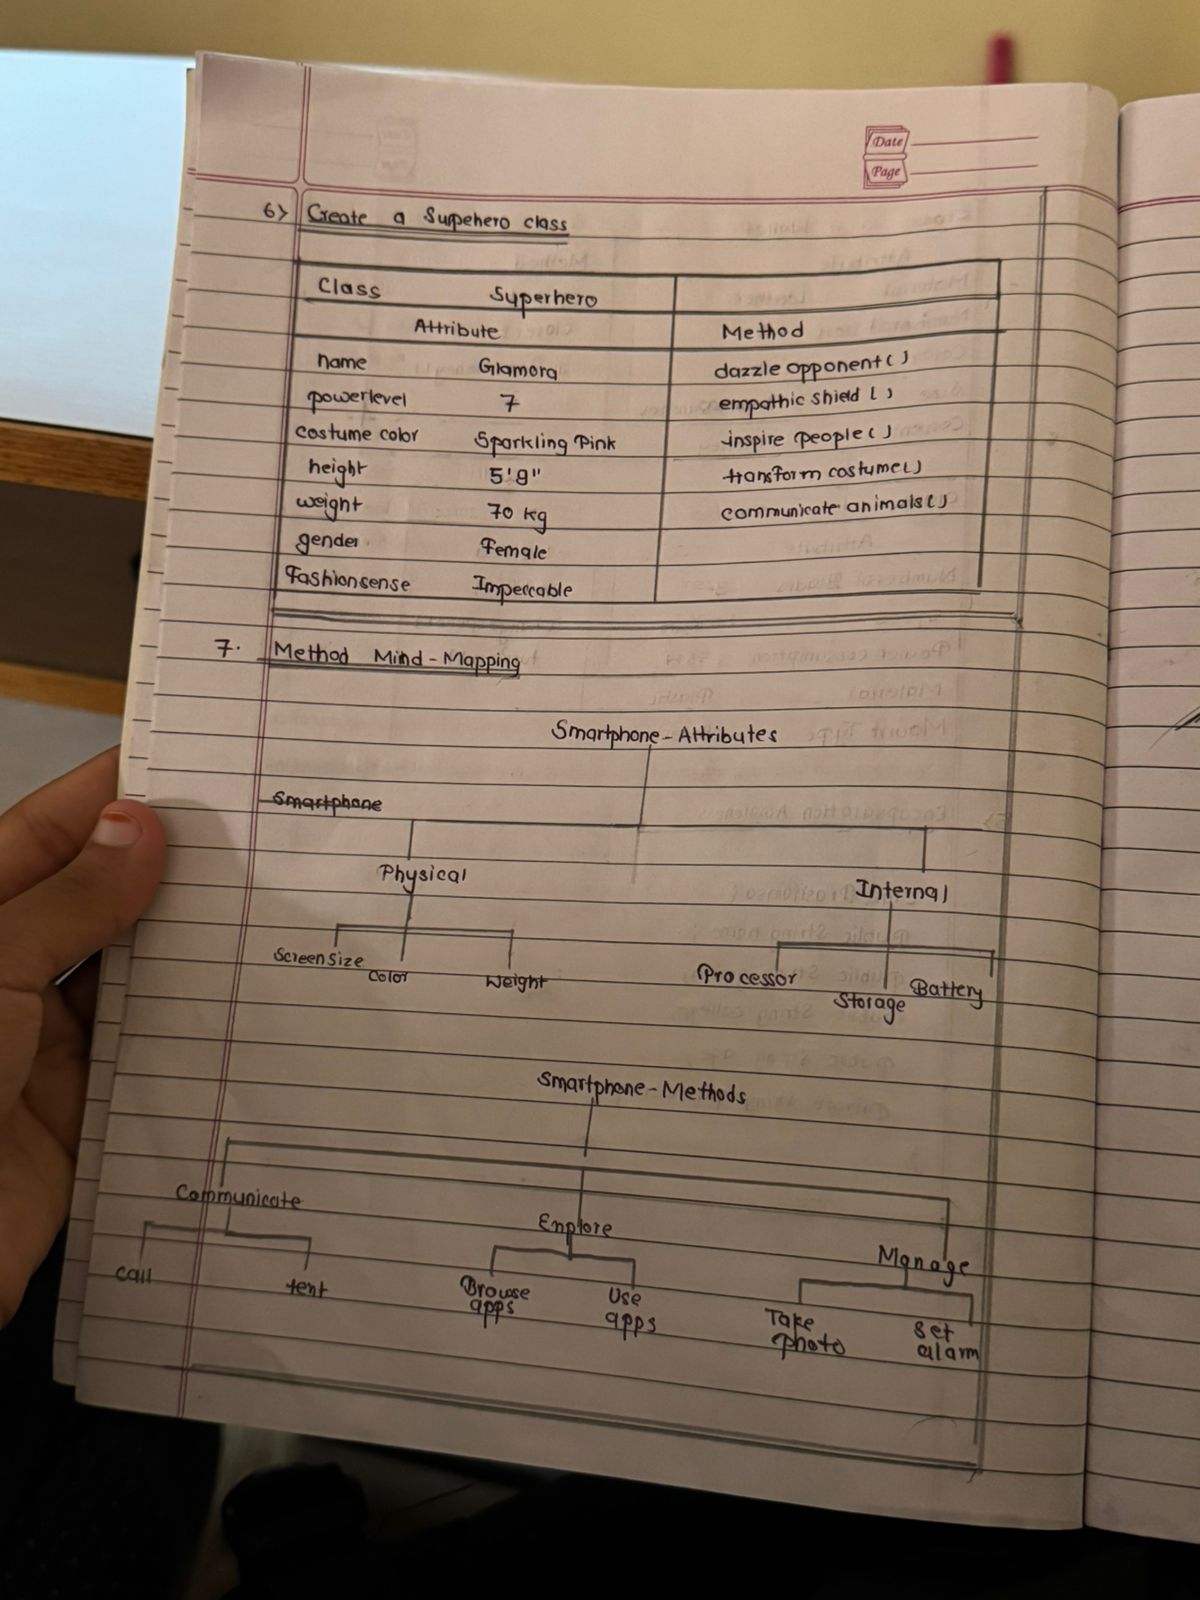 Date
Page
6> Create a Supehero class
Class Superhero
Attribute Method
name Glamora dazzle opponent()
powerlevel 7 empathic shield()
costume color Sparkling Pink inspire people()
height 5'9" transform costume()
weight 70 kg communicate animals()
gender Female
Fashionsense Impeccable
7. Method Mind-Mapping
Smartphone-Attributes
Smartphone
Physical Internal
Screen Size Color Weight Processor Storage Battery
Smartphone-Methods
Communicate Explore Manage
call text Browse apps Use apps Take photo set alarm